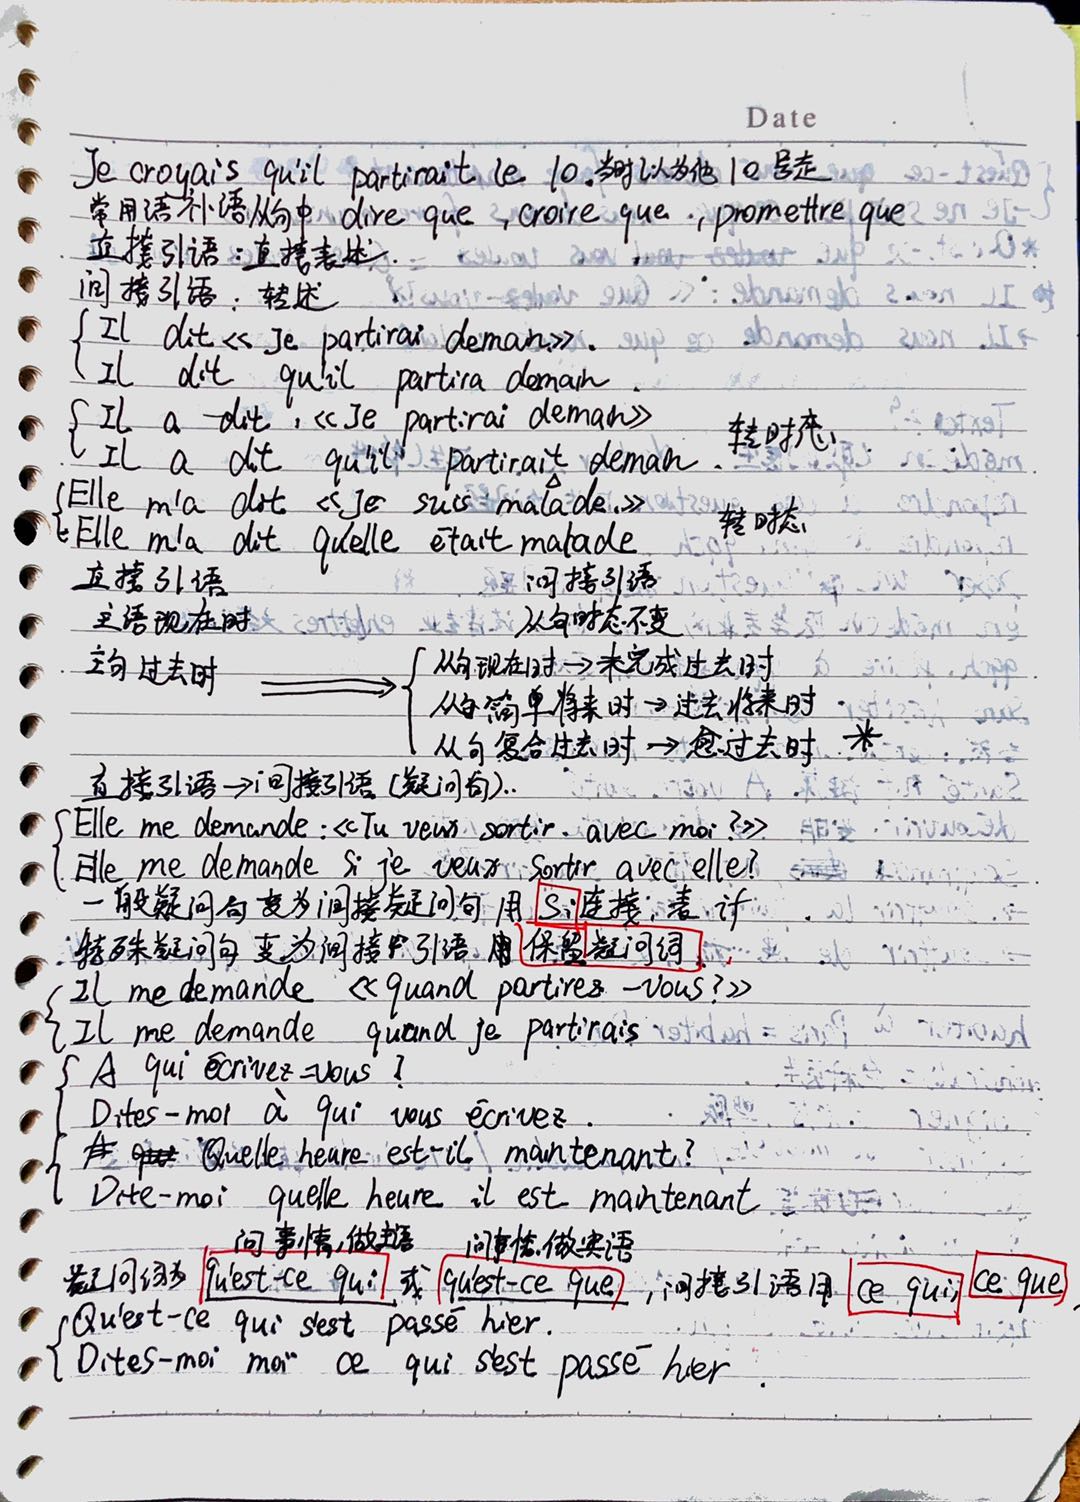 Date
Je croyais qu'il partirait le 10. 当时以为他10号走
常用语补语从句中 dire que, croire que, promettre que
直接引语：直接表述.
间接引语：转述
Il dit << Je partirai deman>>.
Il dit qu'il partira demain.
Il a dit, <<Je partirai deman>>
转时态
Il a dit qu'il partirait deman.
Elle m'a dit <<Je suis malade.>>
转时态
Elle m'a dit qu'elle était malade
直接引语 间接引语
主语现在时 从句时态不变
主句过去时 从句现在时→未完成过去时
从句简单将来时→过去将来时
从句复合过去时→愈过去时
直接引语→间接引语(疑问句)..
Elle me demande:<<Tu veux sortir avec moi?>>
Elle me demande si je veux sortir avec elle?
一般疑问句变为间接疑问句 用 Si 连接,
特殊疑问句变为间接引语 保留疑问词
Il me demande <<quand partirez-vous?>>
Il me demande quand je partirais
A qui écrivez-vous?
Dites-moi à qui vous écrivez.
Quelle heure est-il maintenant?
Dite-moi quelle heure il est maintenant
问事情,做主语 问事情.做宾语
疑问词为 qu'est-ce qui 或 qu'est-ce que, 间接引语用 ce qui, ce que
Qu'est-ce qui s'est passé hier.
Dites-moi moi ce qui s'est passé hier.